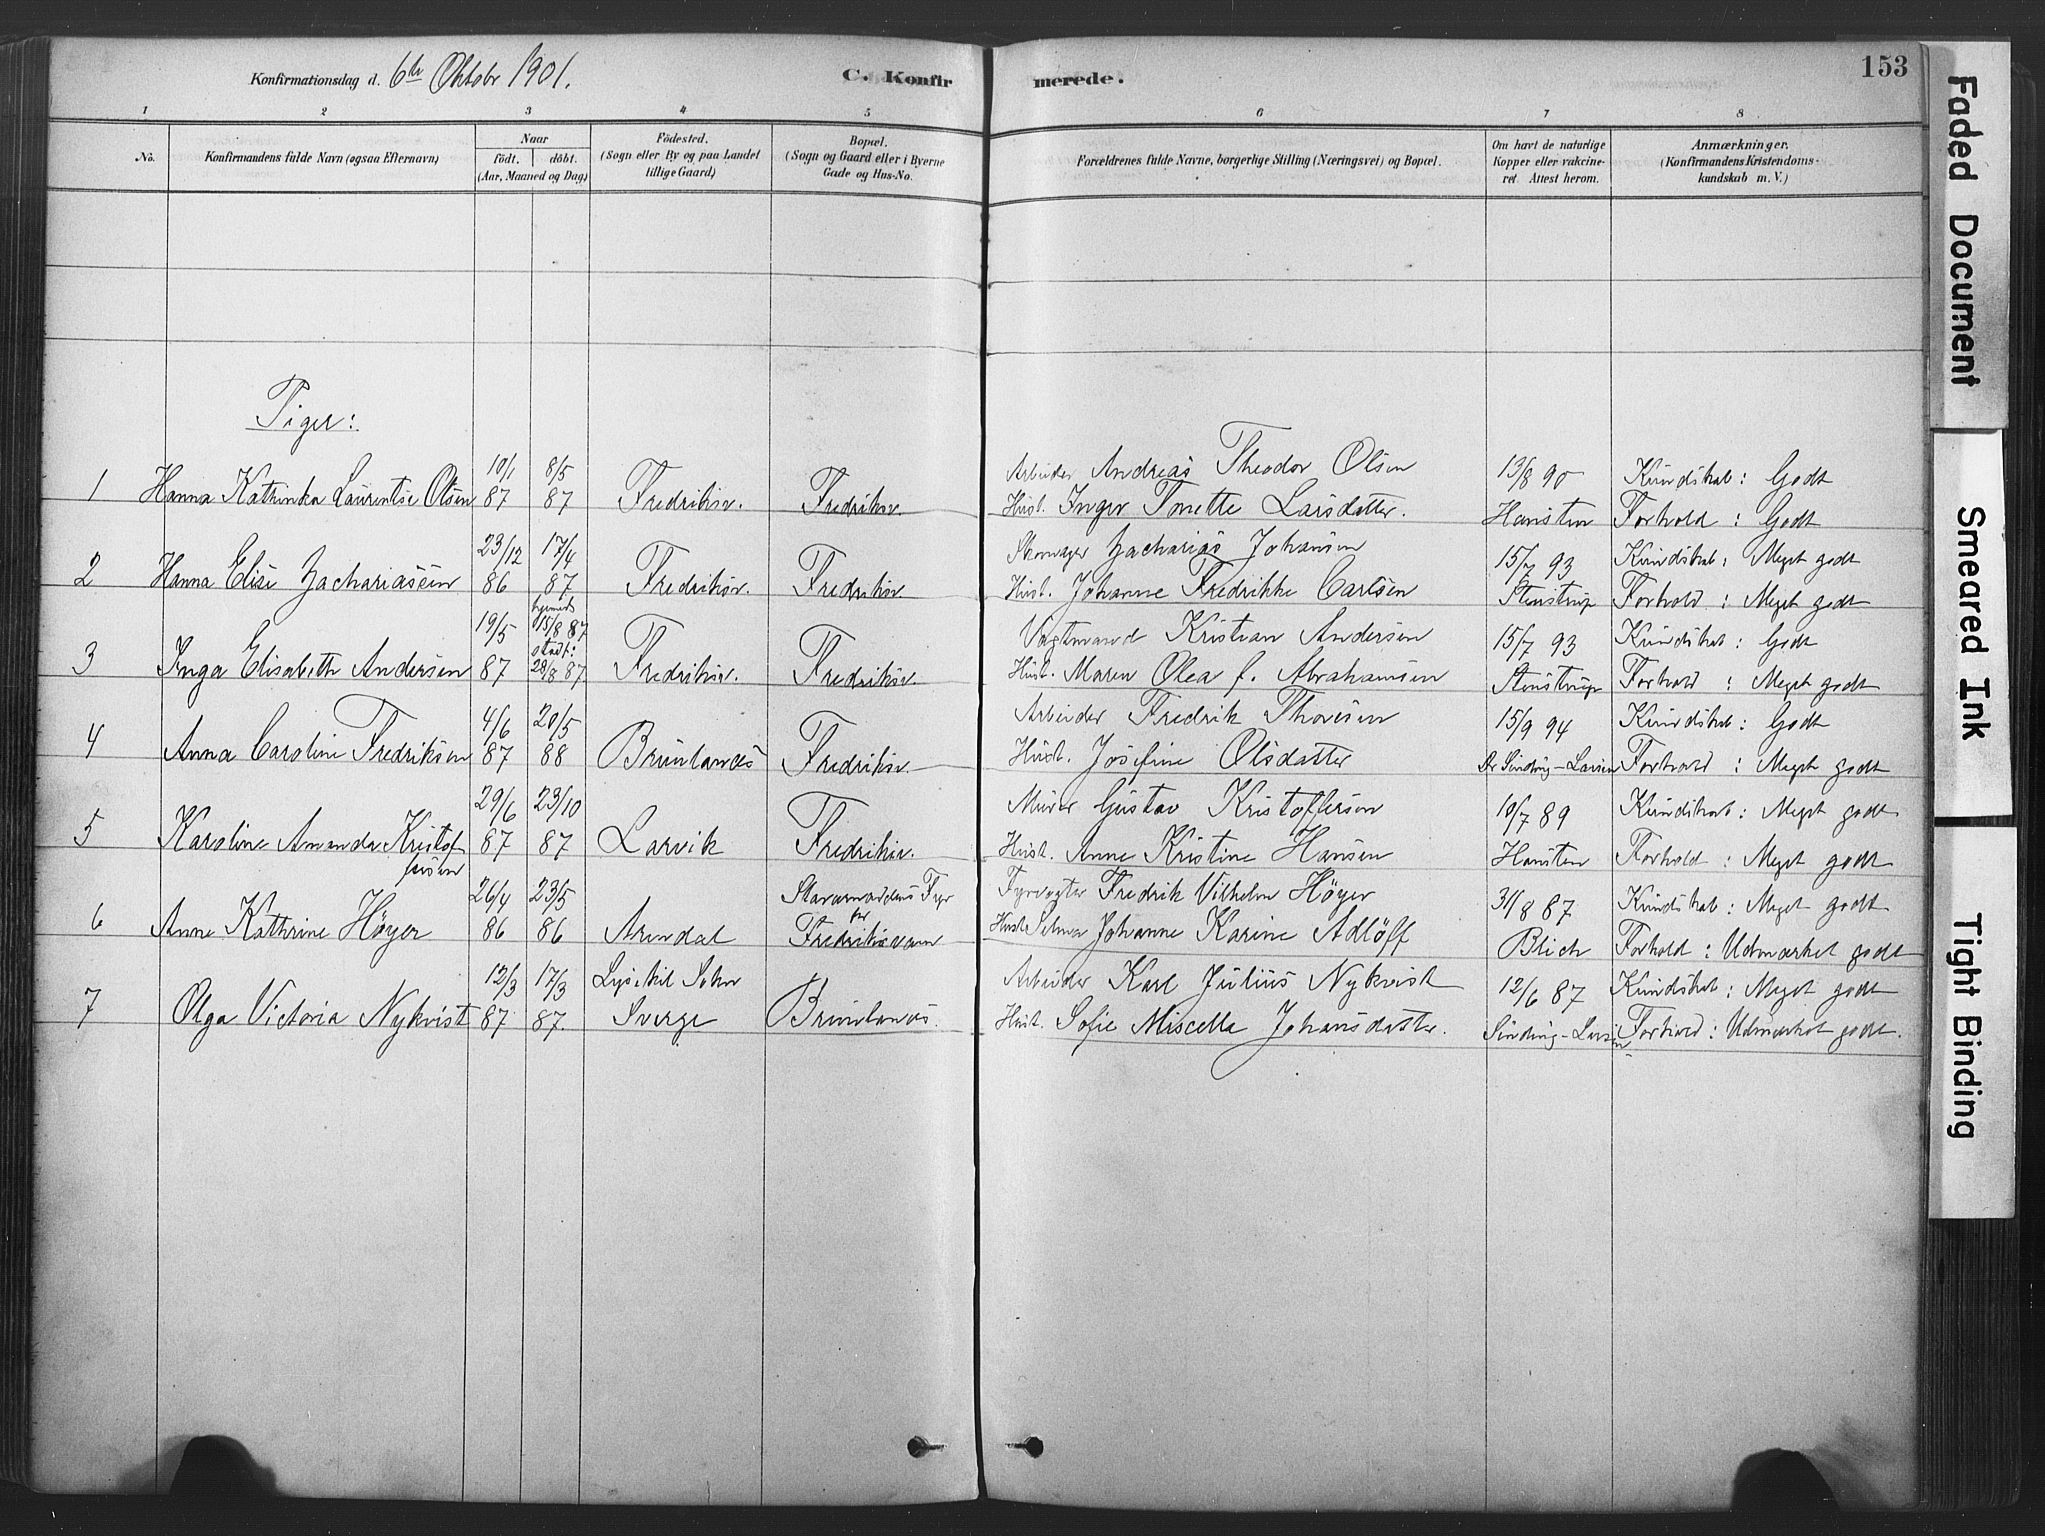 Konfirmationsdag d. 6te Oktober 1901.
C. Konfirmerede.
153
1 2 3 4 5 6 7 8
No.
Konfirmandens fulde Navn (ogsaa Efternavn)
Naar
födt. döbt.
(Aar, Maaned og Dag)
Födested.
(Sogn eller By og paa Landet
tillige Gaard)
Bopæl.
(Sogn og Gaard eller i Byerne
Gade og Hus-No.
Forældrenes fulde Navne, borgerlige Stilling (Næringsvei) og Bopæl.
Om havt de naturlige
Kopper eller vakcine-
ret. Attest herom.
Anmærkninger.
(Konfirmandens Kristendoms-
kundskab m. V.)
Piger:
10/1 8/5 Arbeider Andreas Theodor Olsen 13/8 90 Kundskab: Godt
1 Hanna Kathinka Laurentse Olsen 87 87 Fredriksv. Fredriksv. Hust. Inger Tonette Larsdatter. Hansten Forhold: Godt
23/12 17/4 Skomager Zacharias Johansen 15/7 93 Kundskab: Meget godt
2 Hanna Elise Zachariassen 86 87 Fredriksv. Fredriksv. Hust. Johanne Fredrikke Carlsen Stenstrup Forhold: Meget godt
hjemmed.
19/5 15/8 87 Vagtmand Kristian Andersen 15/7 93 Kundskab: Godt
stadf:
3 Inga Elisabeth Andersen 87 28/8 87 Fredriksv. Fredriksv. Hust. Maren Olea f. Abrahamsen Stenstrup Forhold: Meget godt
4/6 20/5 Arbeider Fredrik Thoresen 15/9 94 Kundskab: Godt
4 Anna Caroline Fredriksen 87 88 Brunlanæs Fredriksv. Hust. Josefine Olsdatter Dr Sinding-Larsen Forhold: Meget godt
29/6 23/10 Murer Gustav Kristoffersen 10/7 89 Kundskab: Meget godt
5 Karoline Amanda Kristof 87 87 Larvik Fredriksv. Hust. Anne Kristine Hansen Hansten Forhold: Meget godt
fersen
26/4 23/5 Staværnsodden Fyr Fyrvogter Fredrik Vilhelm Höyer 31/8 87 Kundskab: Meget godt
6 Anne Kathrine Höyer 86 86 Arendal Fredriksværn Hust. Selma Johanne Karine Adlöff Blich Forhold: Udmærket godt
12/3 17/3 Lysekil Sokn Arbeider Karl Julius Nykvist 12/6 87 Kundskab: Meget godt
7 Olga Victoria Nykvist 87 87 Sverge Brunlanæs. Hust. Sofie Miscella Johansdatter. Sinding-Larsen Forhold: Udmærket godt.
Faded Document
Smeared Ink
Tight Binding